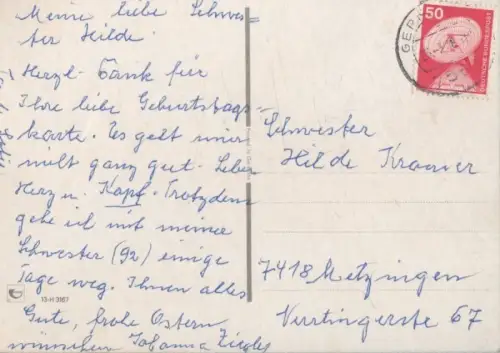 Meine liebe Schwes-
ter Hilde.
Herzl. Dank für
Ihre liebe Geburtstags-
karte. Es geht mir
nicht ganz gut. Leber
Herz u. Kopf. Trotzdem
gehe ich mit meiner
Schwester (92) einige
Tage weg. Ihnen alles
Gute, frohe Ostern
wünschen Johanna Ziegler
13-H 3167
50
DEUTSCHE BUNDESPOST
GER
Schwester
Hilde
7418 Metzingen
Nürtingerstr 67